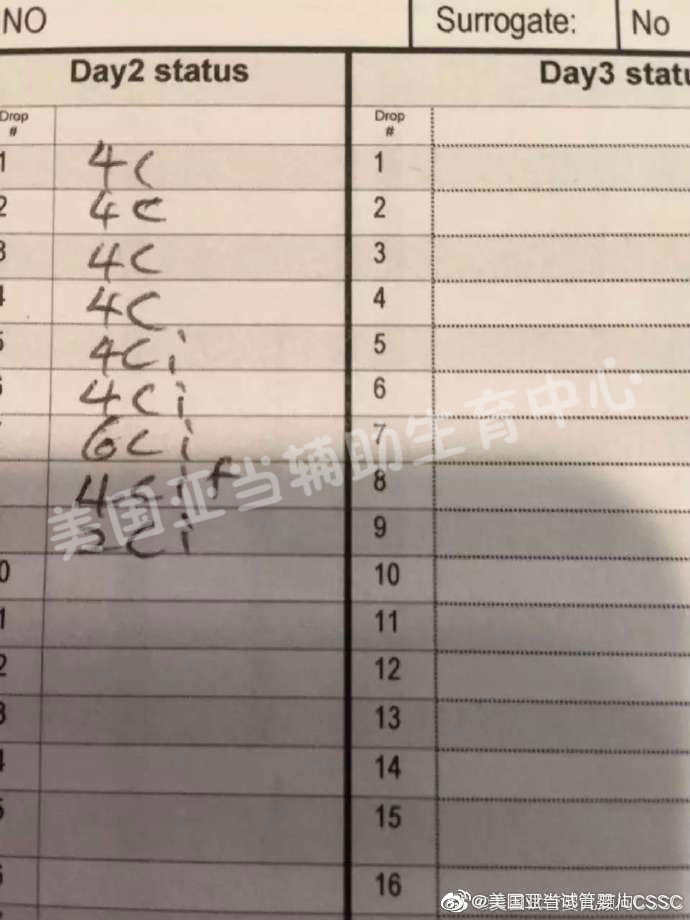 NO Surrogate: No
Day2 status Day3 statu
Drop # Drop #
1 4c 1
2 4c 2
3 4c 3
4 4c 4
5 4ci 5
6 4ci 6
6ci 7
4cif 8
ci 9
0 10
1 11
2 12
3 13
4 14
5 15
6 16
美国亚当辅助生育中心
@美国亚当试管婴儿CSSC